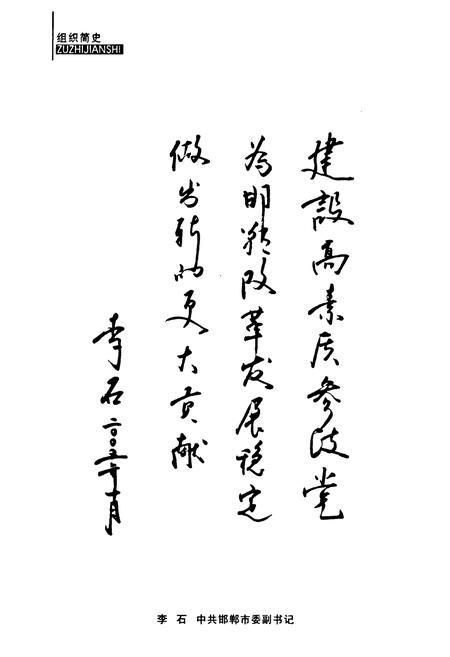 组织简史
ZUZHIJIANSHI
建設高素质参政党
為邯郸改革发展稳定
做出新的更大贡献
李石 二〇〇五年十月
李 石 中共邯郸市委副书记